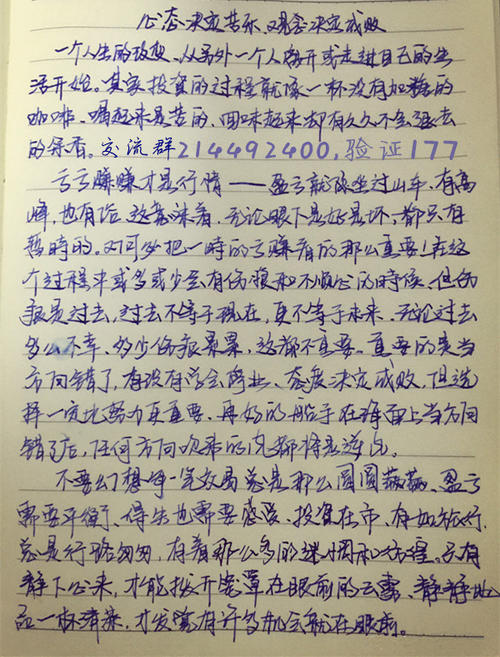 心态决定苦乐,观念决定成败
一个人生的改变,从另外一个人离开或走进自己的生
活开始。其实投資的过程就像一杯没有加糖的
咖啡,喝起来是苦的,回味起来却有久久不会退去
的余香。交流群214492400,验证177
亏亏赚赚才是行情——盈亏就像坐过山车,有高
峰,也有低谷,这意味着,无论眼下是好是坏,都只有
暂時的。又何必把一時的亏赚看的那么重要!在这
个过程中或多或少会有伤痕和不顺心的時候,但伤
痕是过去,过去不等于現在,更不等于未来。无论过去
多么不幸、多少伤痕累累,这都不重要。重要的是当
方向错了,有没有学会停止、态度决定成败,但选
择一定比努力更重要、再好的船手在海面上当方向
错了后,任何方向吹来的风都将是逆风。
不要幻想每一笔交易总是那么圆圆滿滿,盈亏
需要平衡、得失也需要感受、投資在市、有如旅行
总是行路匆匆,有着那么多的迷惘和彷徨。只有
静下心来,才能拨开笼罩在眼前的云雾、静静地
品一杯清茶,才发觉有许多机会就在眼前。